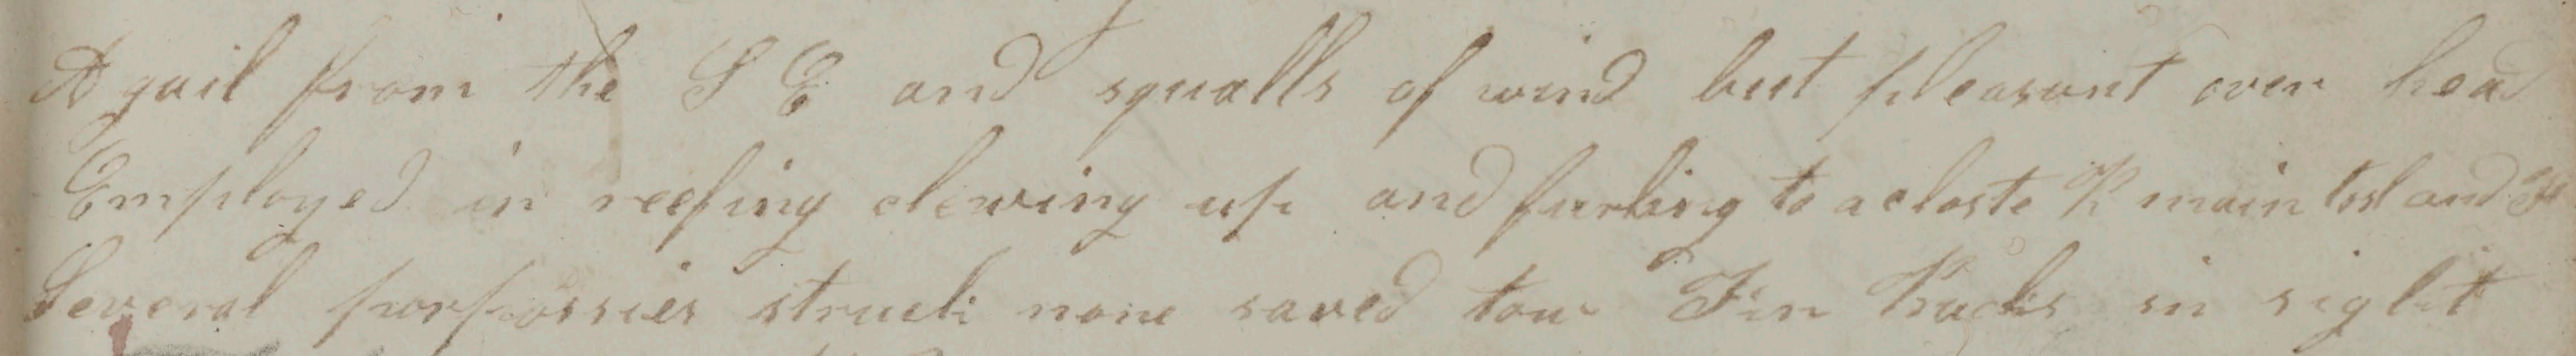 A gail from the S E and squalls of wind but pleasant over head
Employed in reefing clewing up and furling to a closte R main tosl and
Several porpossies struck none saved tow Fin Backs in sight